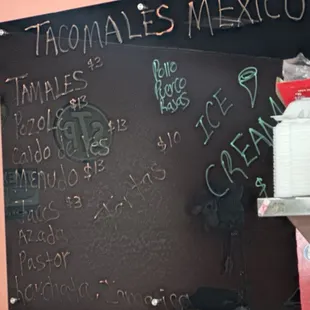 TACOMALES MEXICO
TAMALES $3
Pollo
Puerco
Rajas
Pozole $13
Caldo de Res $13
Menudo $13
Tacos $3
$10
Azada
Pastor
ICE
CREAM
$